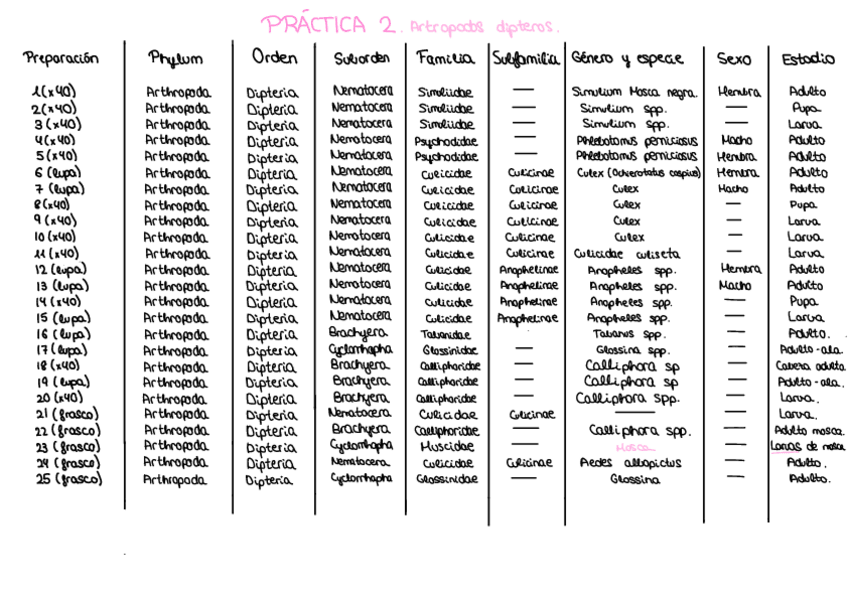 PRÁCTICA 2. Artropodos dipteros.
Preparación Phylum Orden Suborden Familia Subfamilia Género y especie Sexo Estadio
1 (x40) Arthropoda Dipteria Nematocera Simuliidae — Simulium Mosca negra. Hembra Adulto
2 (x40) Arthropoda Dipteria Nematocera Simuliidae — Simulium spp. — Pupa
3 (x40) Arthropoda Dipteria Nematocera Simuliidae — Simulium spp. — Larva
4 (x40) Arthropoda Dipteria Nematocera Psychodidae — Phlebotomus perniciosus Macho Adulto
5 (x40) Arthropoda Dipteria Nematocera Psychodidae — Phlebotomus perniciosus Hembra Adulto
6 (lupa) Arthropoda Dipteria Nematocera Culicidae Culicinae Culex (Ochlerotatus caspius) Hembra Adulto
7 (lupa) Arthropoda Dipteria Nematocera Culicidae Culicinae Culex Macho Adulto
8 (x40) Arthropoda Dipteria Nematocera Culicidae Culicinae Culex — Pupa
9 (x40) Arthropoda Dipteria Nematocera Culicidae Culicinae Culex — Larva
10 (x40) Arthropoda Dipteria Nematocera Culicidae Culicinae Culex — Larva
11 (x40) Arthropoda Dipteria Nematocera Culicidae Culicinae Culicidae culiseta — Larva
12 (lupa) Arthropoda Dipteria Nematocera Culicidae Anophelinae Anopheles spp. Hembra Adulto
13 (lupa) Arthropoda Dipteria Nematocera Culicidae Anophelinae Anopheles spp. Macho Adulto
14 (x40) Arthropoda Dipteria Nematocera Culicidae Anophelinae Anopheles spp. — Pupa
15 (lupa) Arthropoda Dipteria Nematocera Culicidae Anophelinae Anopheles spp. — Larva
16 (lupa) Arthropoda Dipteria Brachyera Tabanidae Tabanus spp. — Adulto.
17 (lupa) Arthropoda Dipteria Cyclorrhapha Glossinidae — Glossina spp. — Adulto-ala.
18 (x40) Arthropoda Dipteria Brachyera Calliphoridae — Calliphora sp — Cabeza adulto
19 (lupa) Arthropoda Dipteria Brachyera Calliphoridae — Calliphora sp — Adulto-ala.
20 (x40) Arthropoda Dipteria Brachyera Calliphoridae — Calliphora spp. — Larva.
21 (frasco) Arthropoda Dipteria Nematocera Culicidae Culicinae — — Larva.
22 (frasco) Arthropoda Dipteria Brachyera Calliphoridae — Calliphora spp. — Adulto mosca.
23 (frasco) Arthropoda Dipteria Cyclorrhapha Muscidae — Mosca — Larvas de mosca
24 (frasco) Arthropoda Dipteria Nematocera Culicidae Culicinae Aedes albopictus — Adulto.
25 (frasco) Arthropoda Dipteria Cyclorrhapha Glossinidae — Glossina — Adulto.